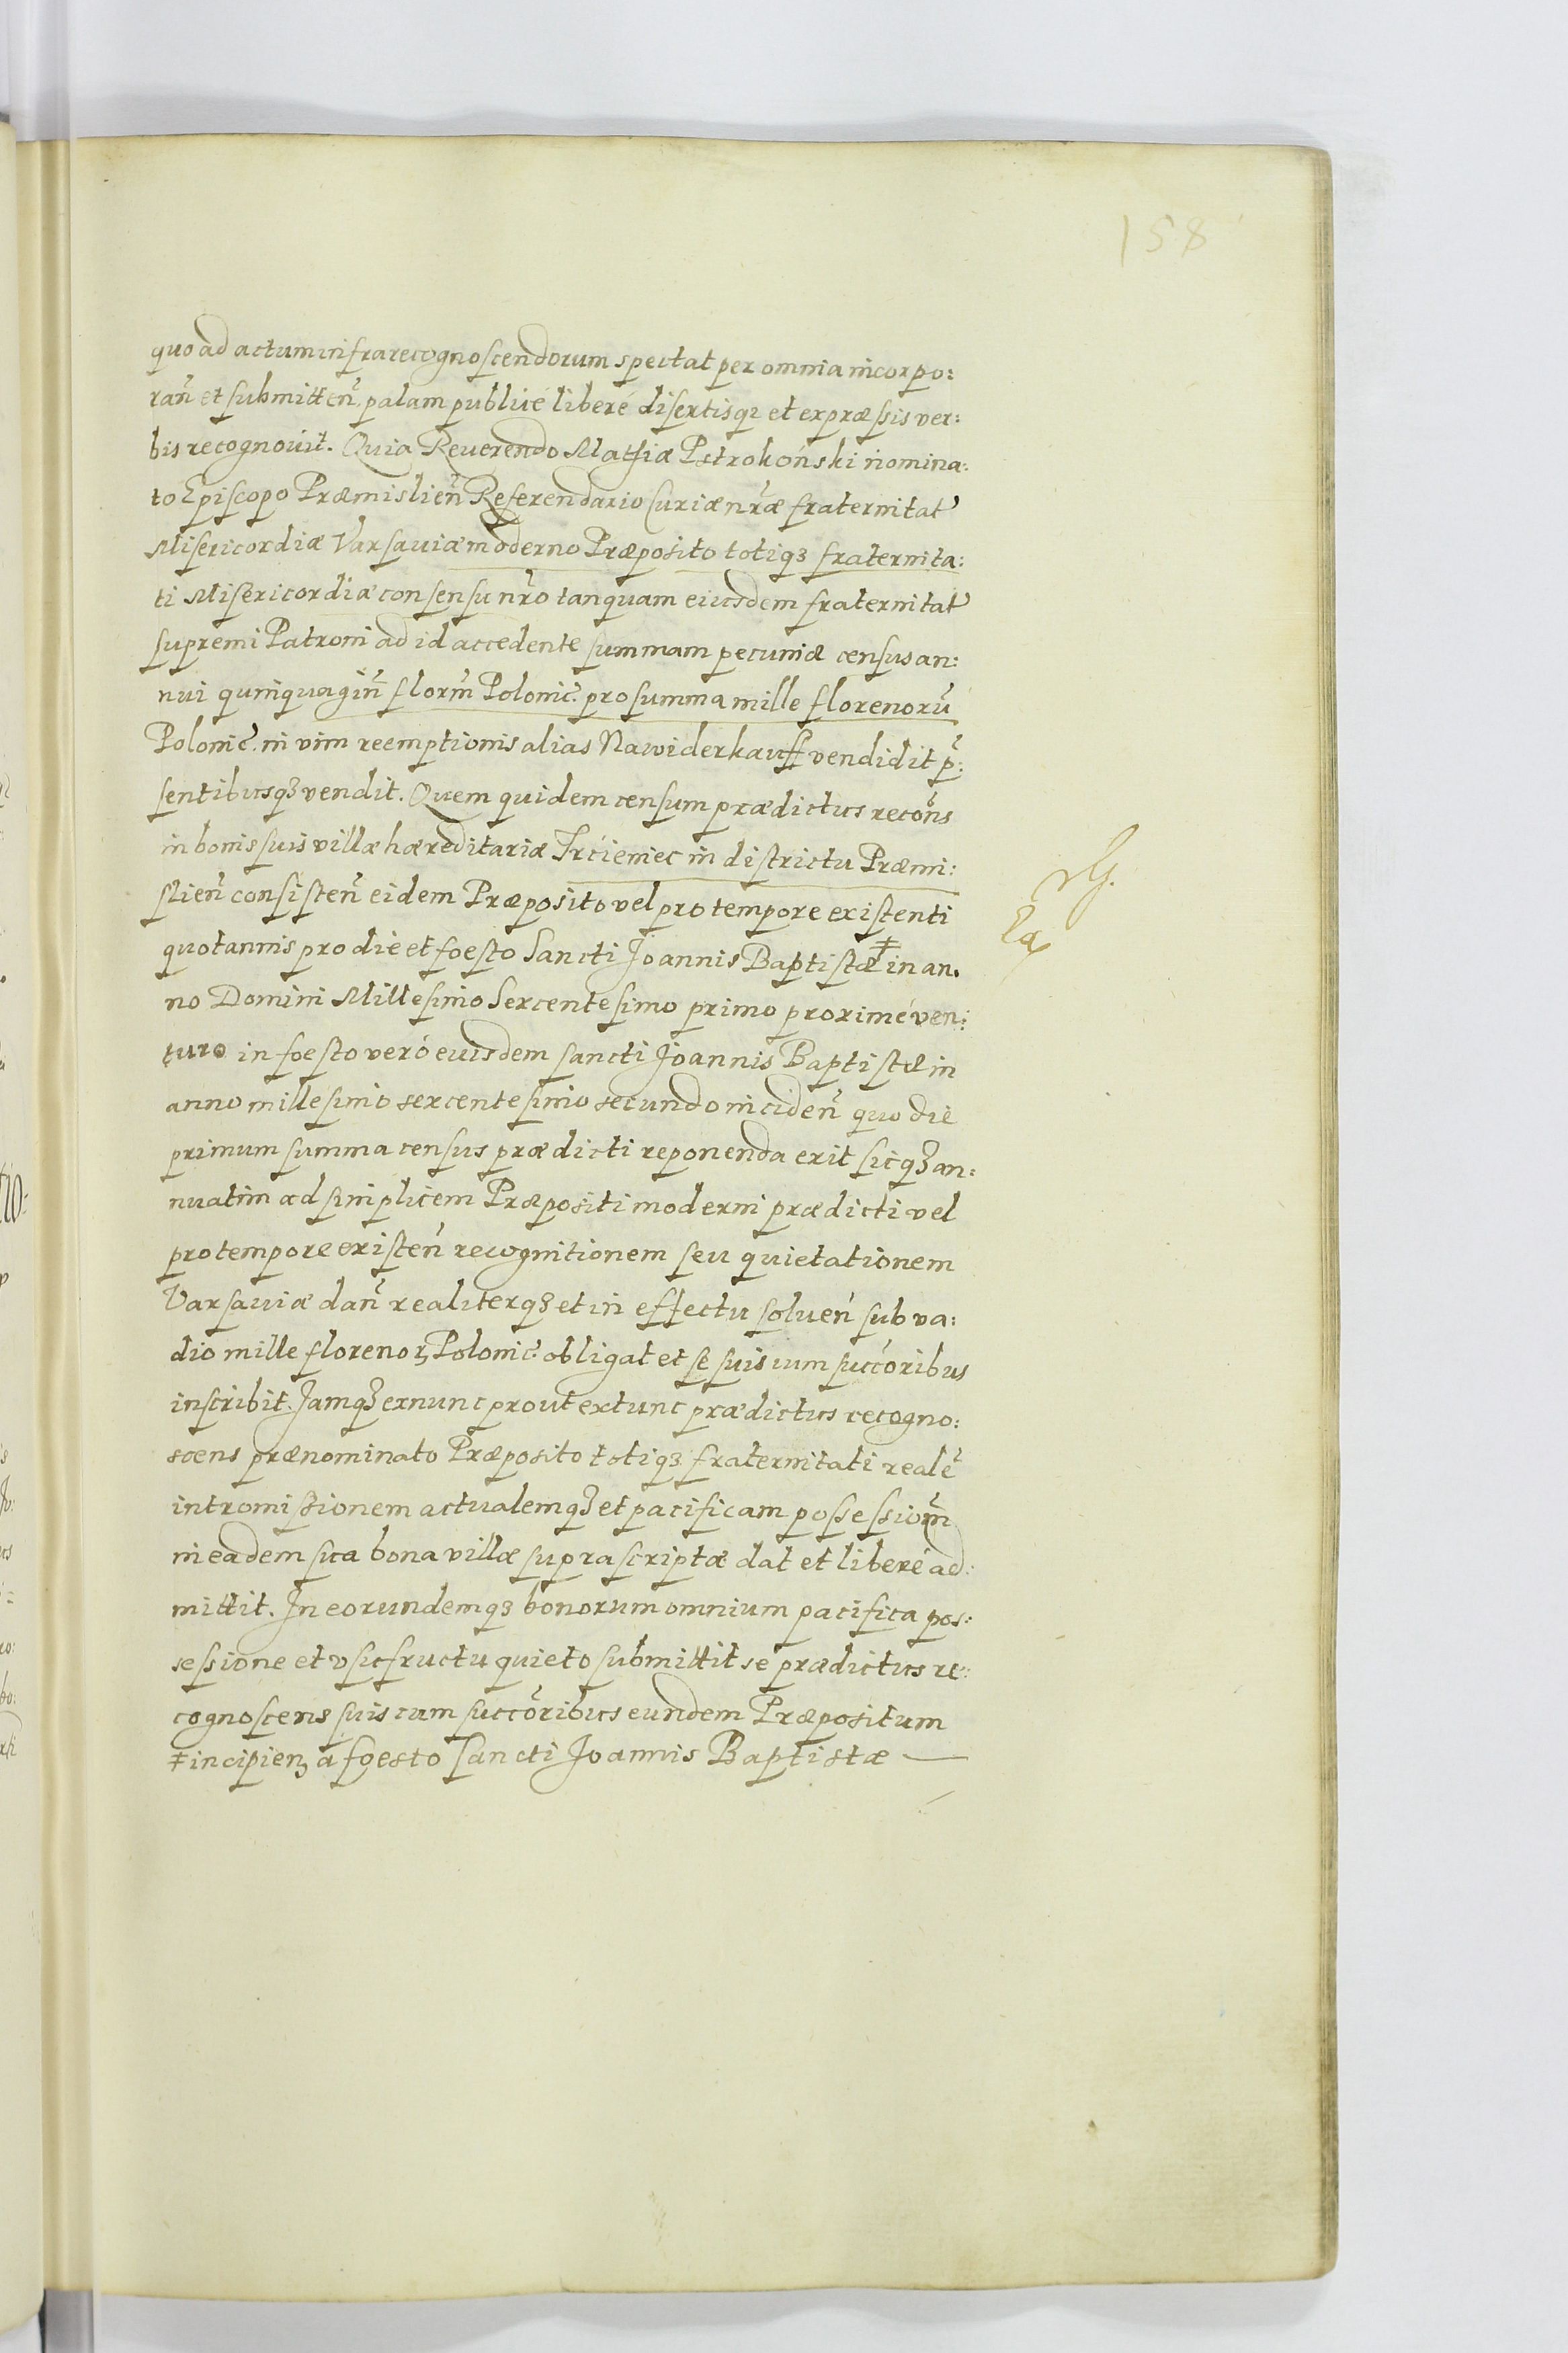 158
quo ad actum infra recognoscendorum spectat per omnia incorpo:
rañ et submitteñ palam publicé liberé disertisq3 et expræssis ver:
bis recognovit. Quia Reuerendo Mathiæ Pstrokoński nomina:
to Episcopo Præmislieñ Referendario Curiæ nr̃æ fraternitat
Misericordiæ Varsauiæ moderno Præposito totiq3 fraternita:
ti Misericordiæ consensu nr̃o tanquam eiusdem fraternitat
supremi Patroni ad id accedente summam pecuniæ census an:
nui quinquagiñ florm̃ Polonic̃ pro summa mille florenorũ
Polonic̃ in vim reemptionis alias Nawiderkauff vendidit p̃:
sentibusq3 vendit. Quem quidem censum prædictus recon̄s
in bonis suis villæ hæreditariæ Trcieniec in districtu Præmi:
slieñ consisteñ eidem Præposito vel pro tempore existenti
quotannis pro die et foesto Sancti Joannis Baptistæ ǂ in an.
no Domini Millesimo Sexcentesimo primo proximé ven:
turo in foesto veró eiusdem sancti Joannis Baptistæ in
anno millesimo sexcentesimo secundo incideñ quo die
primum summa census prædicti reponenda erit sicq3 an:
nuatim ad simplicem Præpositi moderni prædicti vel
pro tempore existeñ recognitionem seu quietationem
Varsauiæ dañ realiterq3 et in effectu solueñ sub va:
dio mille florenoꝝ Polonic̃ obligat et se suis cum succ̃oribus
inscribit. Jamq3 exnunc prout extunc prædictus recogno:
scens prænominato Præposito totiq3 fraternitati realẽ
intromissionem actualemq3 et pacificam possessiom̃
in eadem sua bona villæ suprascriptæ dat et liberé ad:
mittit. In eorundemq3 bonorum omnium pacifica pos:
sessione et vsufructu quieto submittit se prædictus re:
cognoscens suis cum succ̃oribus eundem Præpositum
ǂ incipienꝫ á foesto Sancti Joannis Baptistæ —